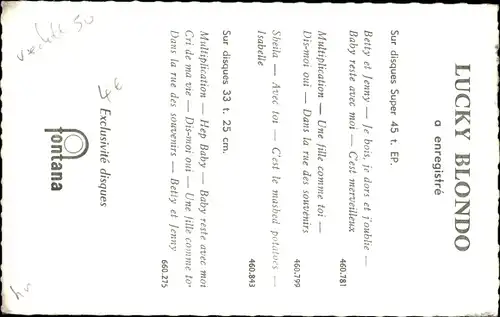 LUCKY BLONDO
a enregistré
Sur disques Super 45 t. EP.
Betty et Jenny — Je bois, je dors et j'oublie —
Baby reste avec moi — C'est merveilleux
460.781
Multiplication — Une fille comme toi —
Dis-moi oui — Dans la rue des souvenirs
460.799
Sheila — Avec toi — C'est le mashed potatoes —
Isabelle
460.843
Sur disques 33 t. 25 cm.
Multiplication — Hep Baby — Baby reste avec moi
Cri de ma vie — Dis-moi oui — Une fille comme toi
Dans la rue des souvenirs — Betty et Jenny
660.275
4€
Exclusivité disques
fontana